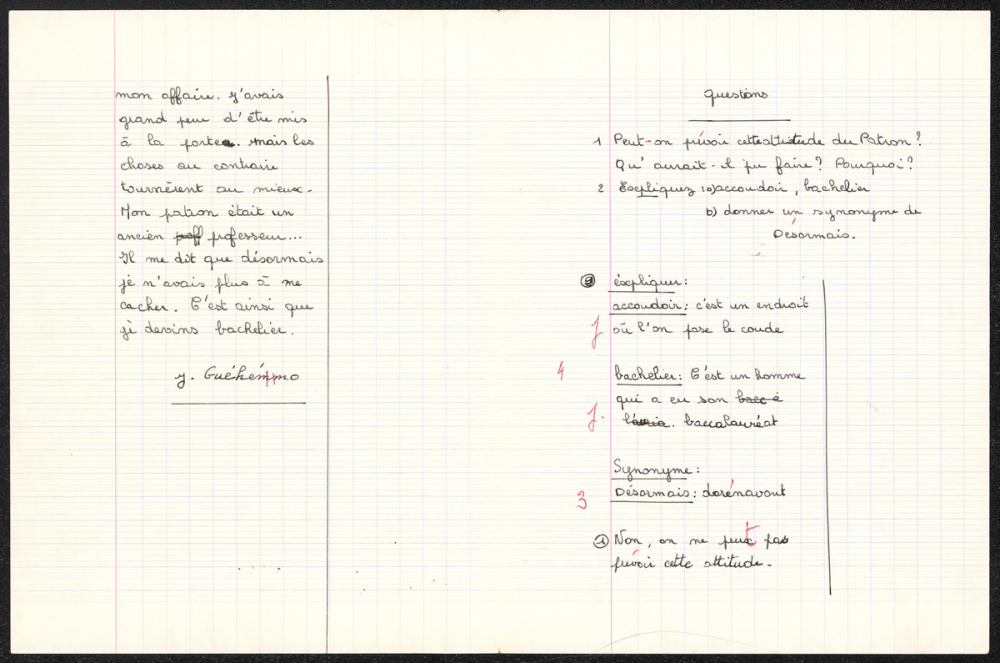 mon affaire. J'avais
grand peur d'être mis
à la porte. Mais les
choses au contraire
tournèrent au mieux.
Mon patron était un
ancien proff professeur...
Il me dit que désormais
je n'avais plus à me
cacher. C'est ainsi que
je devins bachelier.
J. Guéhénno
Questions
1 Peut-on prévoir cette attitude du Patron?
Qu'aurait-il pu faire? Pourquoi?
2 Expliquez a) accoudoir, bachelier
b) donner un synonyme de
Désormais.
② éxpliquer:
accoudoir: c'est un endroit
J où l'on pose le coude
4 bachelier: C'est un homme
qui a eu son
J. baccalauréat
Synonyme:
3 Désormais: dorénavant
① Non, on ne peut pas
prévoir cette attitude.